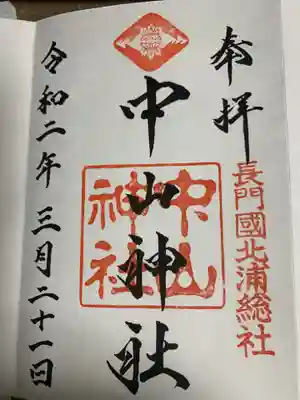 奉拝
長門國北浦総社
中山神社
中山神社
令和二年三月二十一日